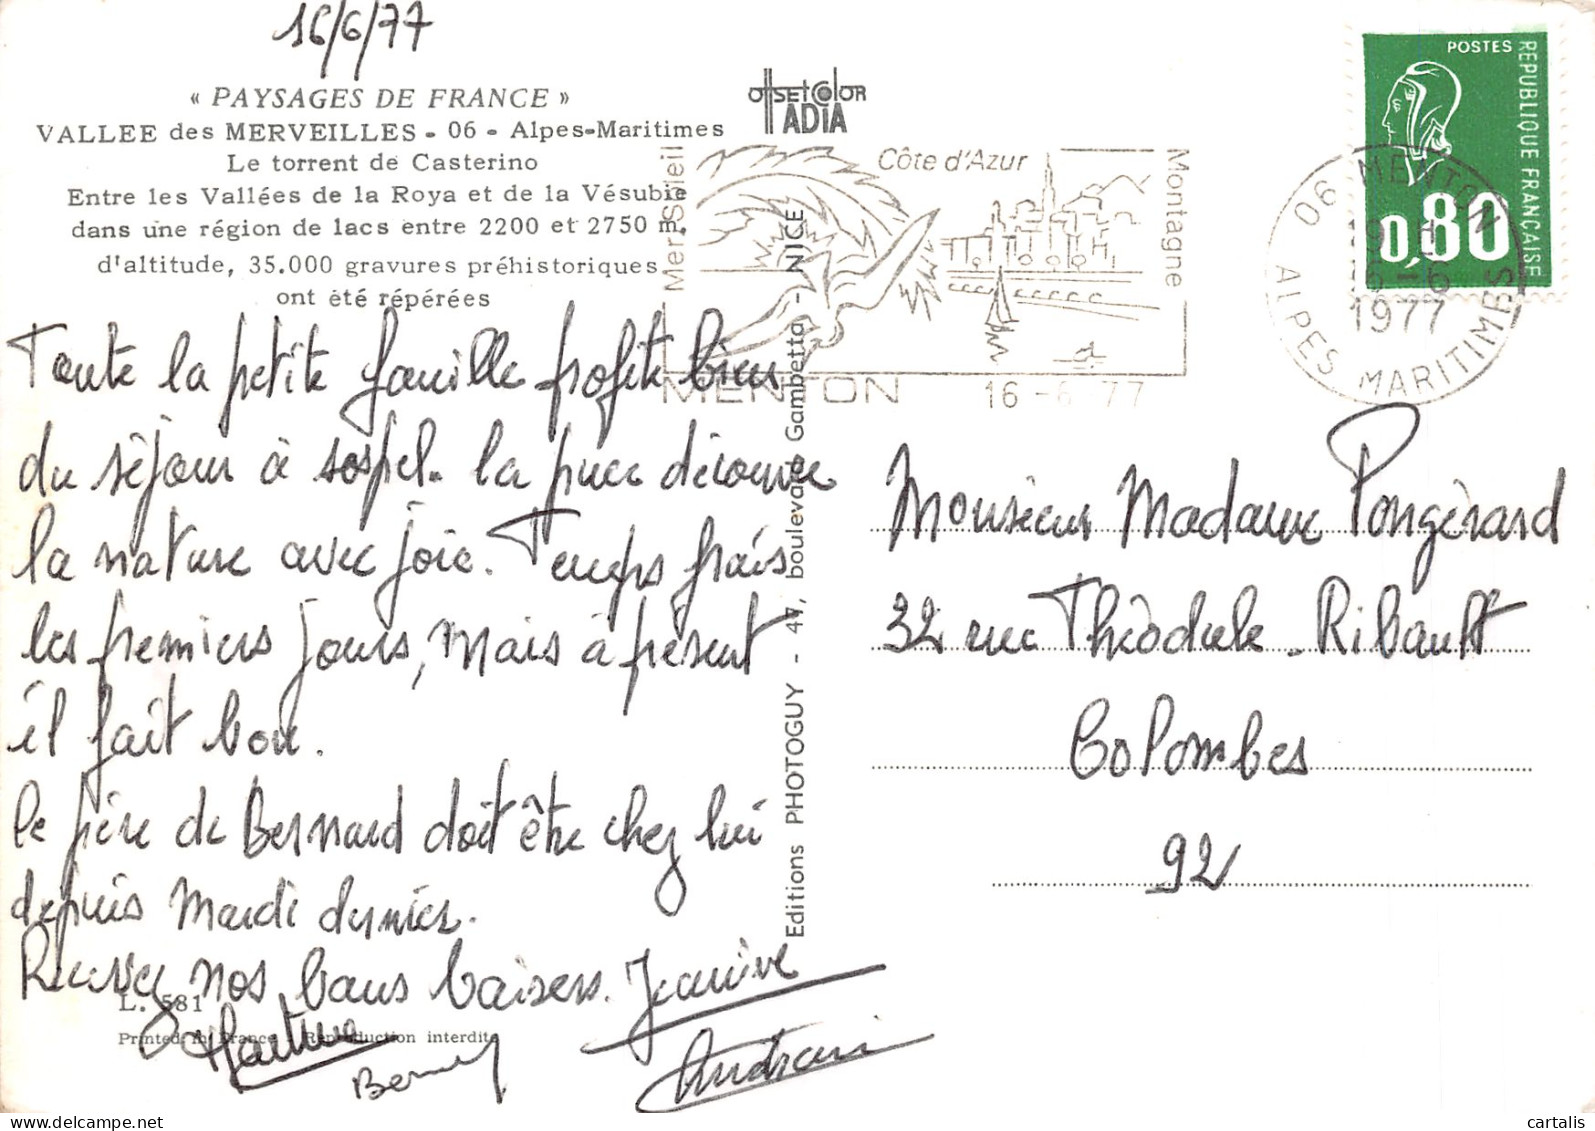 16/6/77
« PAYSAGES DE FRANCE »
VALLEE des MERVEILLES - 06 - Alpes-Maritimes
Le torrent de Casterino
Entre les Vallées de la Roya et de la Vésubie
dans une région de lacs entre 2200 et 2750 m.
d'altitude, 35.000 gravures préhistoriques
ont été répérées
Toute la petite famille profite bien
du séjour à sospel. la puce découvre
la nature avec joie. Temps frais
les premiers jours, mais à présent
il fait bon.
le père de Bernard doit être chez lui
depuis Mardi dernier.
Recevez nos bons baisers. Janine
Martine
L. 581
Printed in France - Reproduction interdite
offset color
IADIA
Mer Soleil
Côte d'Azur
Montagne
MENTON
16 - 6 77
Editions PHOTOGUY - 47, boulevard Gambetta - NICE
POSTES
REPUBLIQUE FRANÇAISE
0,80
06 MENTON
16-6
1977
ALPES MARITIMES
Monsieur Madame Pongérard
32 rue Théodule Ribault
Colombes
92
cartalis
delcampe.net